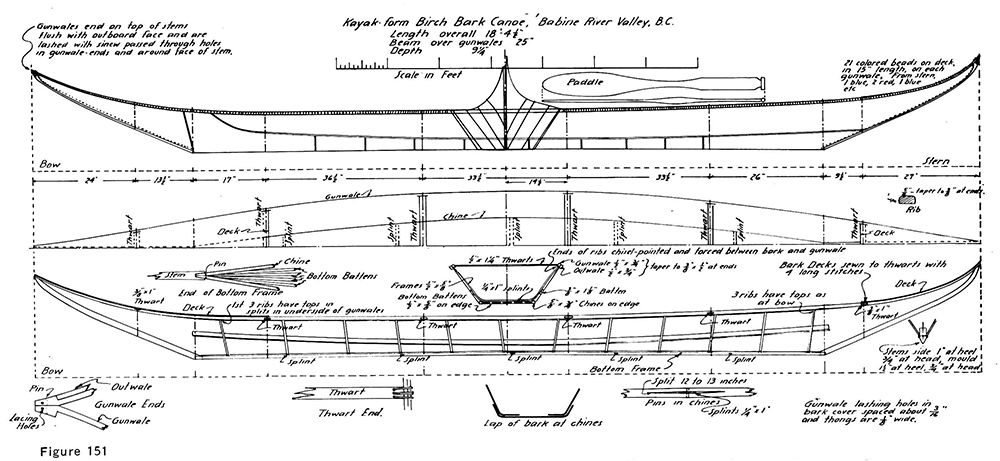 Kayak-form Birch Bark Canoe, Babine River Valley, B.C.
Length overall 18'-4½"
Beam over gunwales 25"
Depth 9¼"
Gunwales end on top of stems
flush with outboard face and are
lashed with sinew passed through holes
in gunwale-ends and around face of stem.
Scale in Feet
Paddle
21 colored beads on deck,
in 15" length, on each
gunwale, from stern,
1 blue, 2 red, 1 blue
etc
Bow
Stern
24" 13½" 17" 36½" 33½" 19½" 39½" 26" 9½" 27"
Gunwale
Chine
Deck
Thwart
Thwart
Splint
Splint
Thwart
Splint
Thwart
Splint
Thwart
Splint
Thwart
Deck
taper to ⅜" at ends
Rib
Ends of ribs chisel-pointed and forced between bark and gunwale
Pin
Chine
Stem
Bottom Battens
End of Bottom Frame
Thwarts
Gunwale
Outwale
taper to ⅜" x ½" at ends
Frames
splints
Bottom Battens
on edge
Batten
Chines on edge
Bark Decks sewn to thwarts with
4 long stitches
Deck
Thwart
Deck
1st 3 ribs have tops in
splits in underside of gunwales
3 ribs have tops as
at bow
Thwart
Thwart
Thwart
Thwart
Thwart
Splint
Splint
Splint
Splint
Bottom Frame
Stems side 1" at heel
¾" at head, mould
1½" at heel, ¾" at head.
Bow
Pin
Outwale
Gunwale Ends
Lacing
Holes
Gunwale
Thwart
Thwart End.
Lap of bark at chines
Split 12 to 13 inches
Pins in chines
splints ¼" x 1"
Gunwale lashing holes in
bark cover spaced about
and thongs are ⅛" wide.
Figure 151